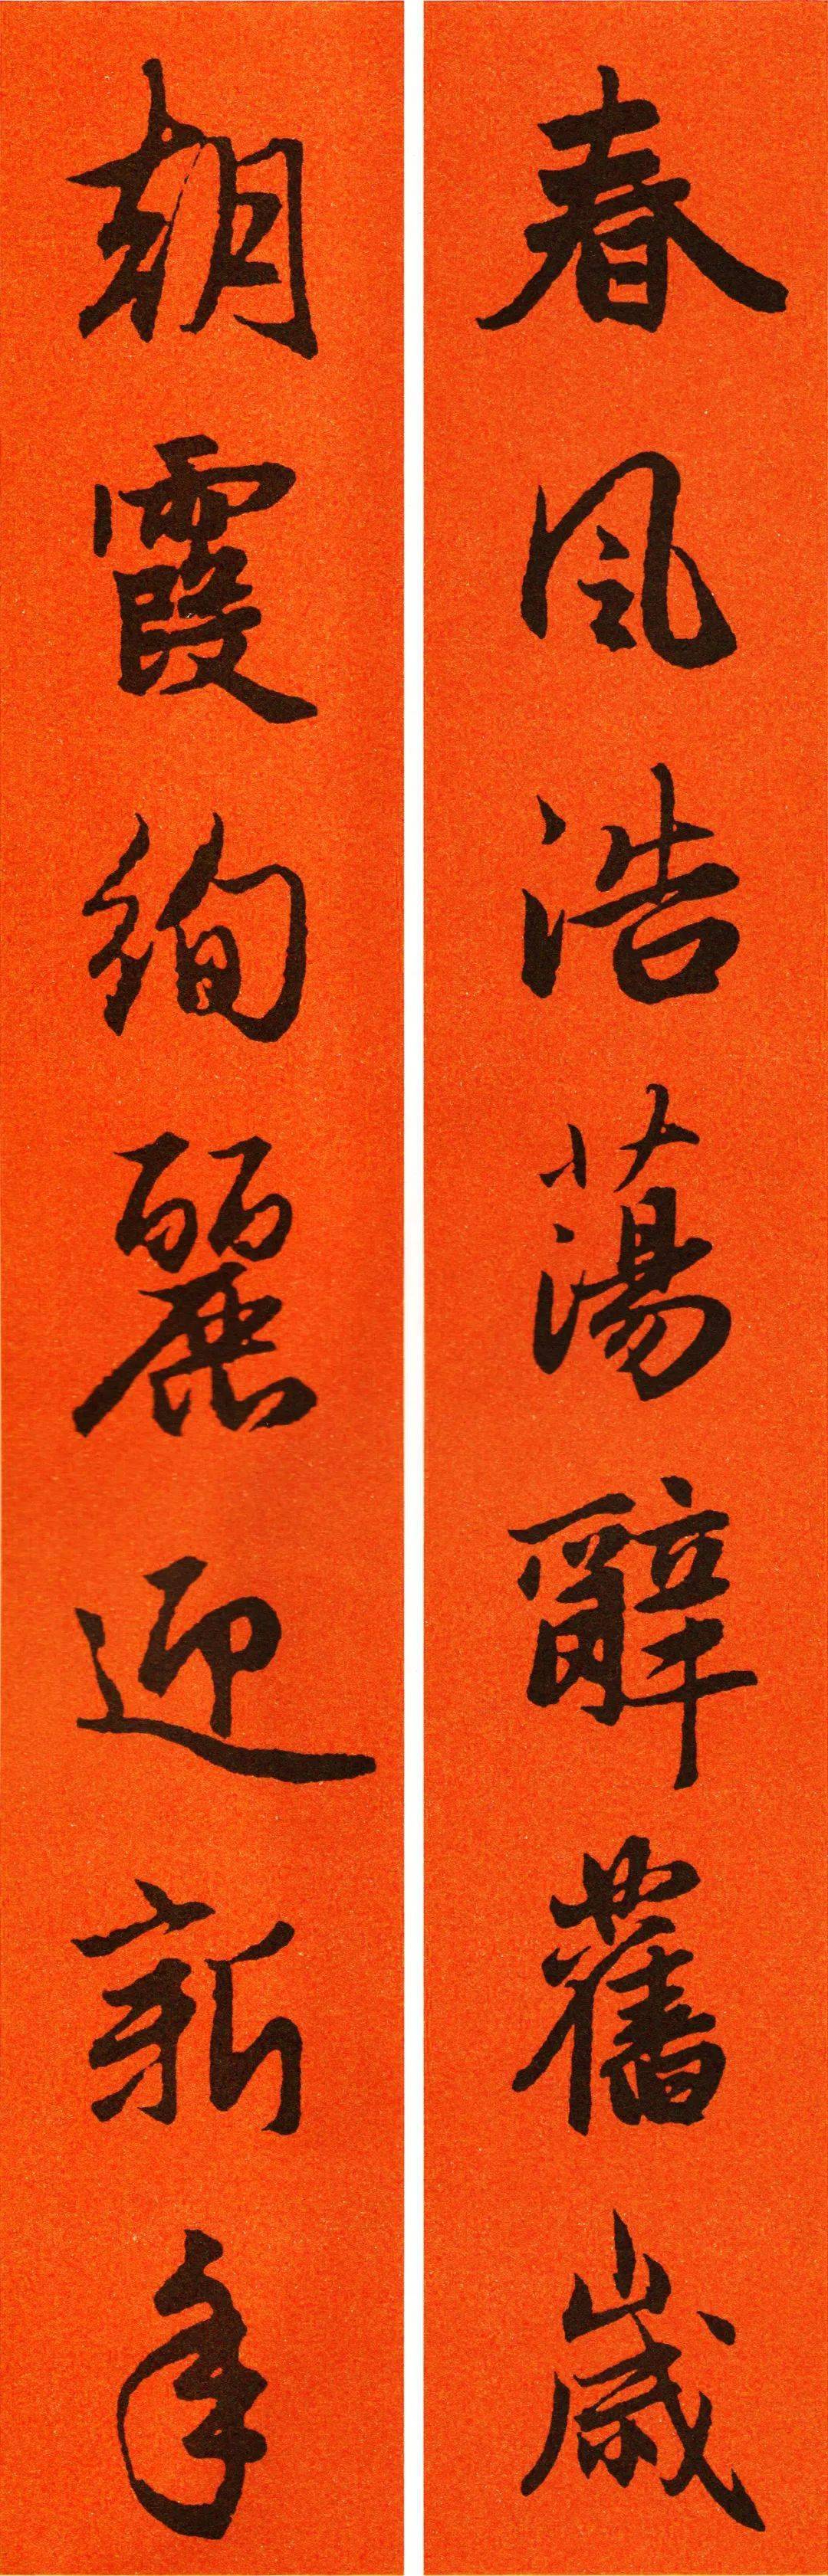 春風浩蕩辭舊歲
朝霞絢麗迎新年